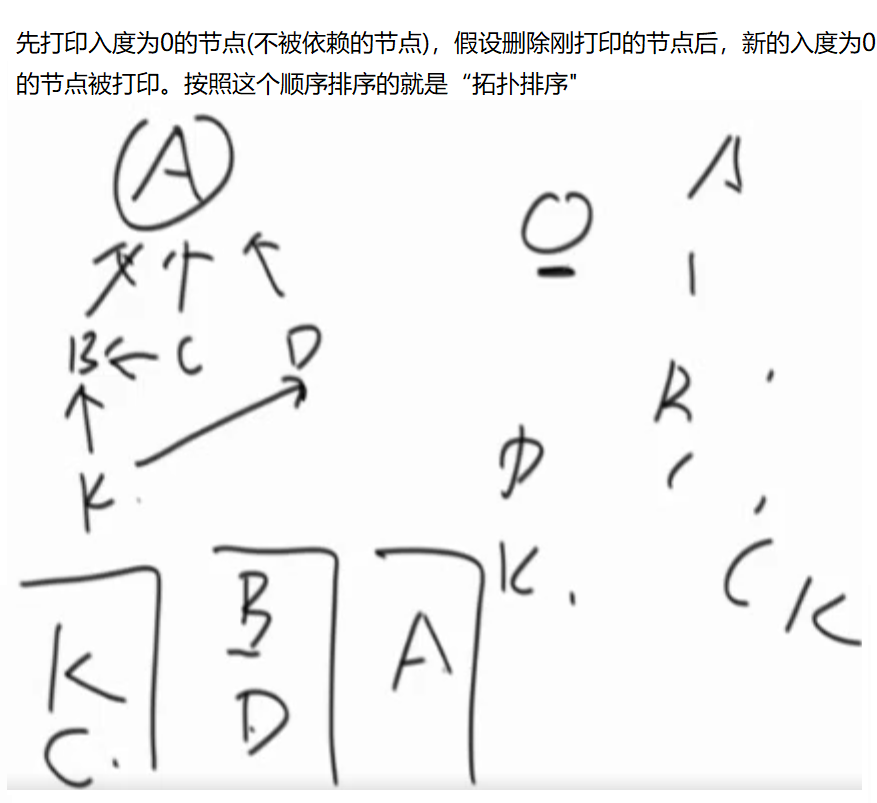 先打印入度为0的节点(不被依赖的节点)，假设删除刚打印的节点后，新的入度为0
的节点被打印。按照这个顺序排序的就是“拓扑排序"
A
A
B C D
B
D
K
K
C K
K B A
C D